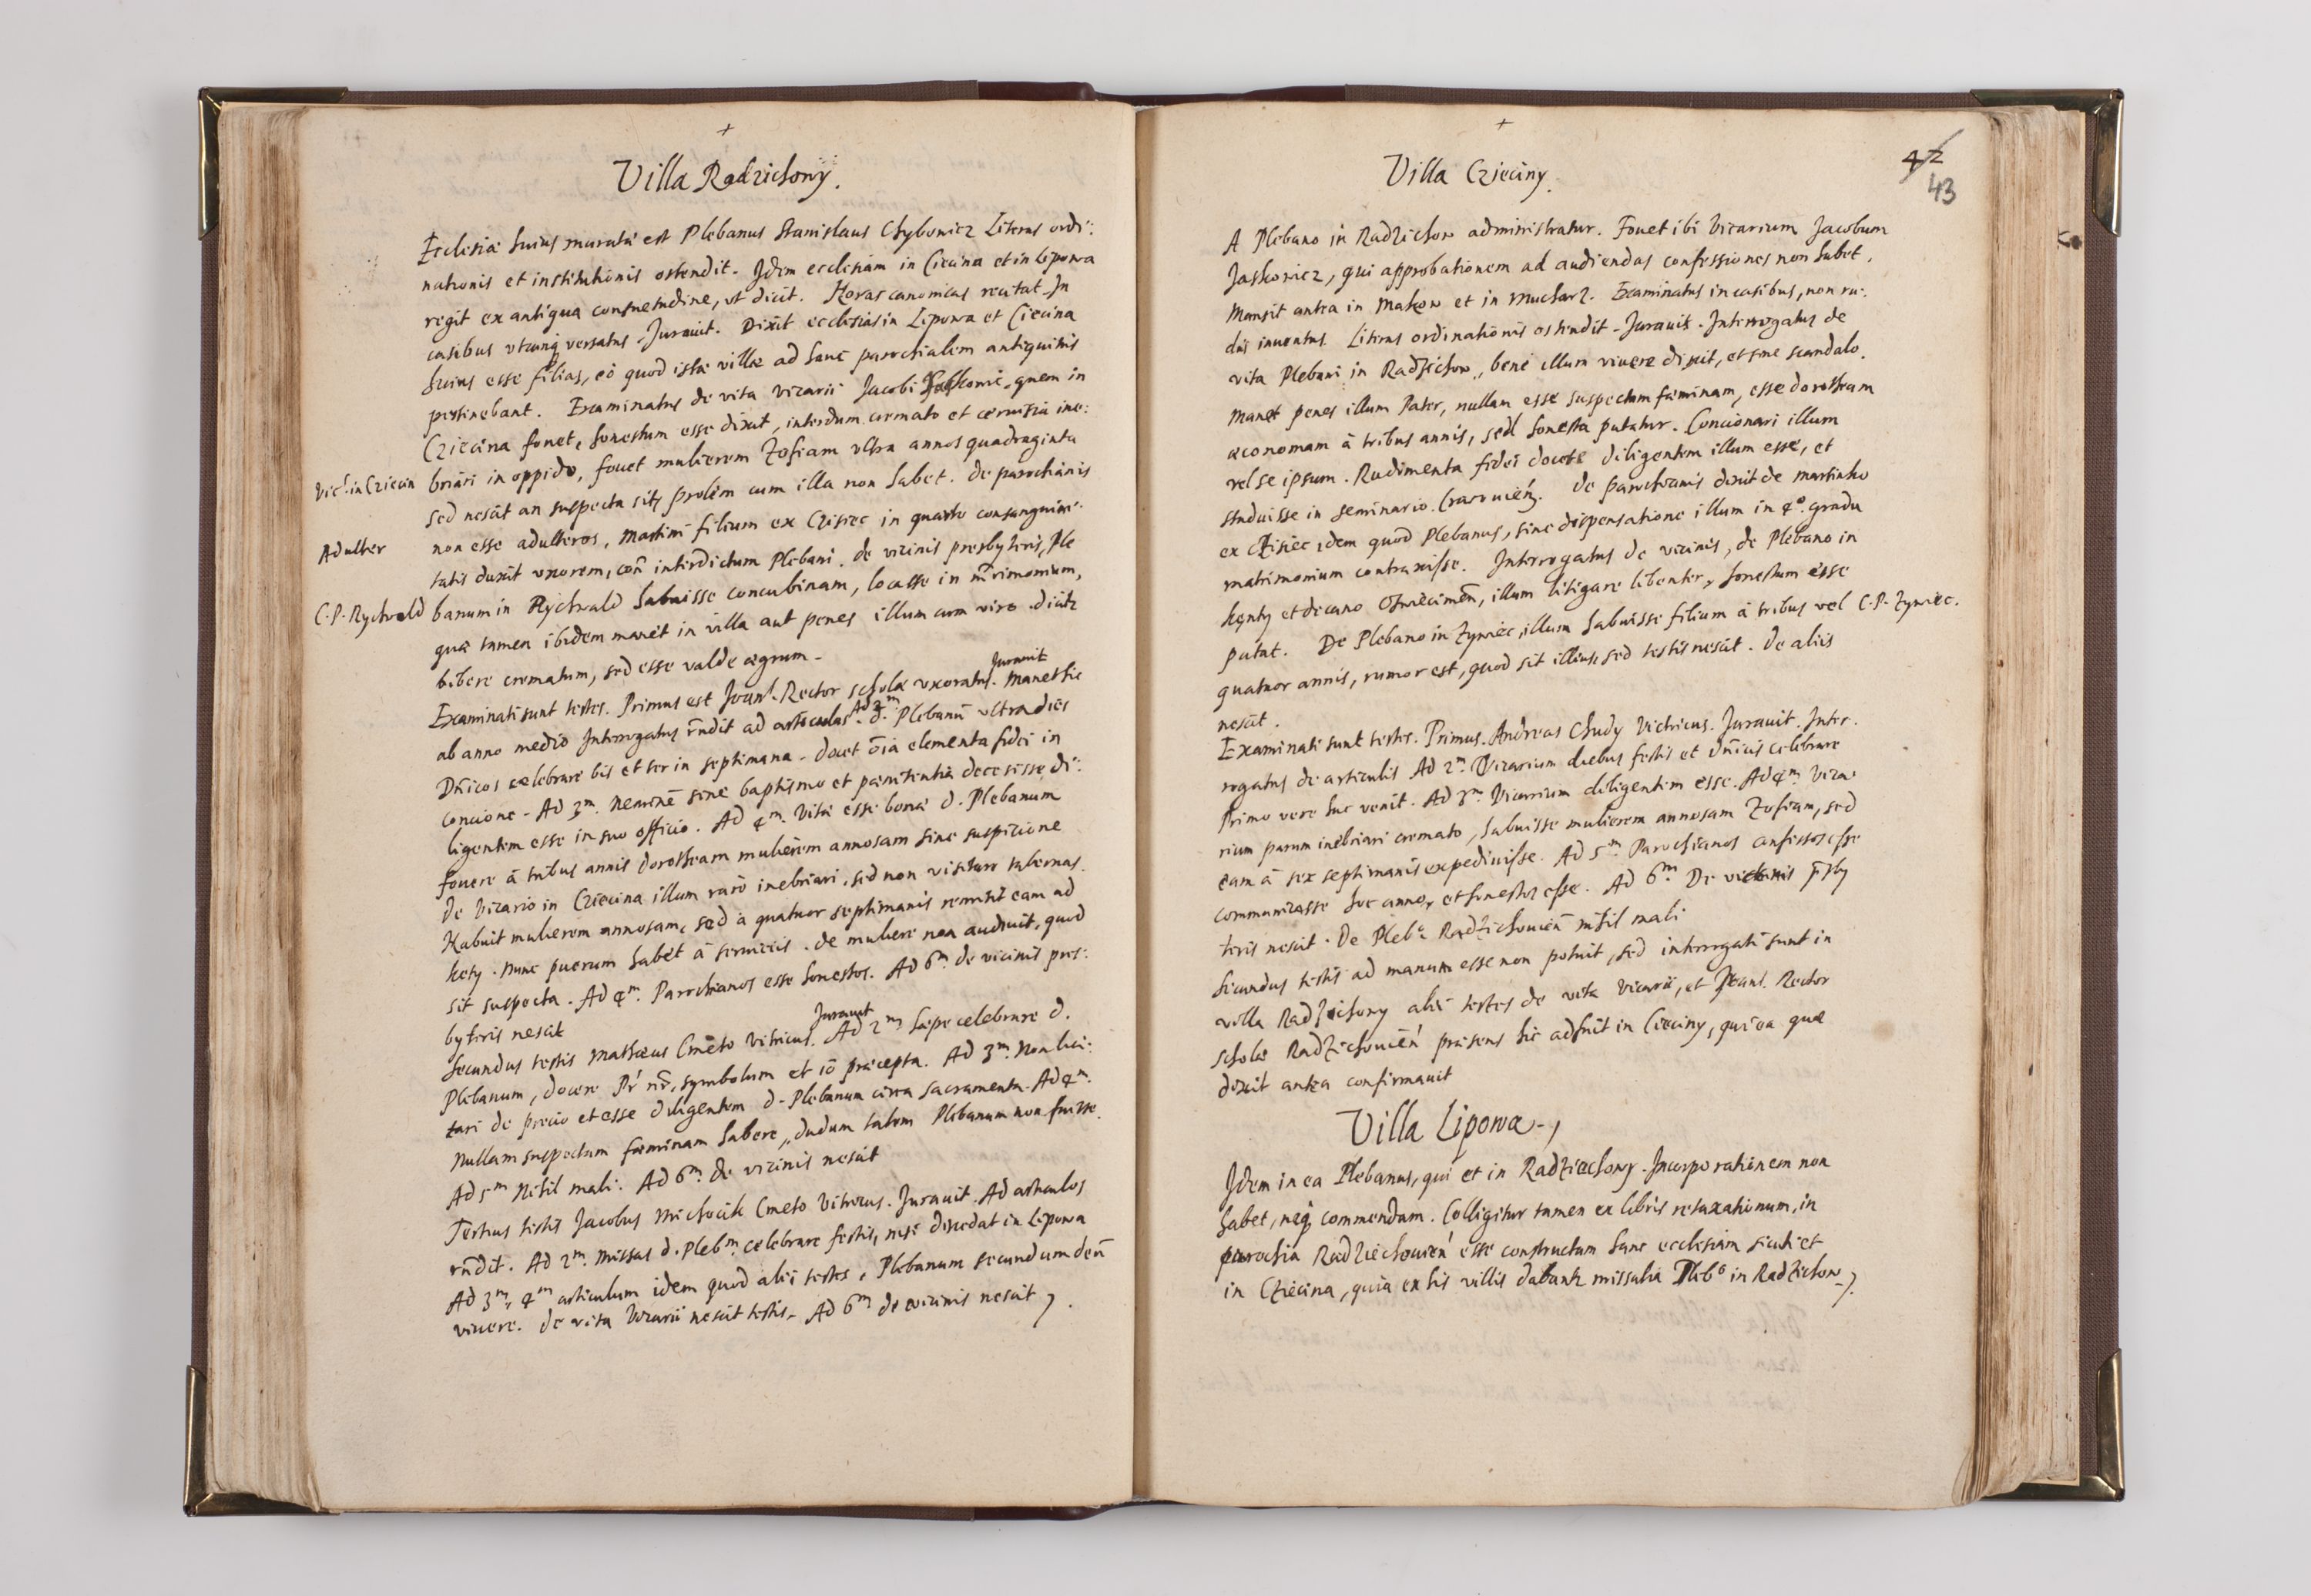 +
Villa Radzichowy.
Ecclesiæ huius muratæ est Plebanus Stanislaus Chybowicz Literas ordi:
nationis et institutionis ostendit. Idem ecclesiam in Ciecina et in Lipowa
regit ex antiqua consuetudine, vt dicit. Horas canonicas recitat. In
casibus vtcunq versatus. Jurauit. Dixit ecclesias in Lipowa et Ciecina
huius esse filias, eò quod istæ villæ ad hanc parochialem antiquitus
pertinebant. Examinatus de vita vicarii Jacobi Jaskowic, quem in
Cziecina fouet, honestum esse dixit, interdum cremato et ceruisia ine:
Vic. in Cziecin briari in oppido, fouet mulierem Zofiam vltra annos quadraginta
sed nescit an suspecta sit, prolem cum illa non habet. De parochianis
Adulter non esse adulteros, Martini filium ex Czisiec in quarto consanguini:
tatis duxit vxorem, con interdictum Plebani. de vicinis presbyteris, Ple
C.P. Rychwald banum in Rychwald habuisse concubinam, locasse in mrimonium,
quæ tamen ibidem manet in villa aut penes illum cum viro. dicit
bibere crematum, sed esse valde ægrum.
Examinati sunt testes. Primus est Joan. Rector scholæ vxoratus. Jurauit Manet hic
ab anno medio Interrogatus rndit ad articulos. Ad 2m d. Plebanū vltra dies
Dnicos celebrare bis et ter in septimana. docet oia elementa fidei in
concione. Ad 3m. neminē sine baptismo et pænitentia decessisse, di:
ligentem esse in suo officio. Ad 4m. Vitæ esse bonæ d. Plebanum
fouere à tribus annis Dorotheam mulierem annosam sine suspicione
de Vicario in Cziecina illum rarò inebriari, sed non visitare tabernas.
Habuit mulierem annosam, sed à quatuor septimanis remisit eam ad
kety. Nunc puerum habet à serviciis. de muliere non audiuit, quod
sit suspecta. Ad 4m. Parochianos esse honestos. Ad 6m. de vicinis pres:
byteris nescit
Secundus testis Mathæus Cmeto Vitricus. Jurauit Ad 2m sæpe celebrare d.
Plebanum, docere Pr nr, symbolum et io præcepta. Ad 3m. Non lici:
tari de precio et esse diligentem d. Plebanum circa sacramenta. Ad 4m.
Nullam suspectam fæminam habere, dudum talem Plebanum non fuisse.
Ad 5m Nihil mali. Ad 6m. de vicinis nescit
Tertius testis Jacobus Michocik Cmeto Vitricus. Jurauit. Ad articulos
rndit. Ad 2m. Missas d. Plebm. celebrare festis, nisi discedat in Lipowa
Ad 3m, 4m articulum idem quod alii testes, Plebanum secundum deū
viuere. de vita Vicarii nescit testis. Ad 6m de vicinis nescit
+
42
43
Villa Czieciny.
A Plebano in Radzichow administratur. Fouet ibi Vicarium Jacobum
Jaskowicz, qui approbationem ad audiendas confessiones non habet.
Mansit antea in Makow et in Mucharz. Examinatus in casibus, non ru:
dis inuentus. Literas ordinationis ostendit. Jurauit. Interrogatus de
vita Plebani in Radzichow, bene illum viuere dixit, et sine scandalo.
Manet penes illum Pater, nullam esse suspectam fæminam, esse dorotheam
æconomam à tribus annis, sed honesta putatur. Concionari illum
vel se ipsum. Rudimenta fidei docere diligentem illum esse, et
studuisse in seminario Cracouień. de parochianis dixit de Martinko
ex Czisiec idem quod Plebanus, sine dispensatione illum in 4o. gradu
matrimonium contraxisse. Interrogatus de vicinis, de Plebano in
kęnty et decano Oswiecimen, illum litigare libenter, honestum esse
putat. De Plebano in Zywiec, illum habuisse filium à tribus vel C.P. Zywiec.
quatuor annis, rumor est, quod sit illius, sed testis nescit. de aliis
nescit.
Examinati sunt testes. Primus. Andreas Chudy Victricus. Jurauit. Inter.
rogatus de articulis Ad 2m. Vicarium diebus festis et dnicis celebrare
Primo vere huc venit. Ad 3m. Vicarium diligentem esse. Ad 4m. Vica:
rium parum inebriari cremato, habuisse mulierem annosam Zofiam, sed
eam à sex septimanis expediuisse. Ad 5m. Parochianos confessos esse
communicasse hoc anno, et honestos esse. Ad 6m. De vicinis psby
teris nescit. De Plebo Radzichouien nihil mali
Secundus testis ad manum esse non potuit, sed interrogati sunt in
villa Radzichowy alii testes de vita Vicarii, et Joan. Rector
scholæ Radzichouien præsens hic adfuit in Czieciny, qui ea quæ
dixit antea confirmauit
Villa Lipowa.
Idem in ea Plebanus, qui et in Radziechowy. Incorporationem non
habet, neq commendam. Colligitur tamen ex libris retaxationum, in
parochia Radziechouien esse constructam hanc ecclesiam sicuti et
in Cziecina, quia ex his villis dabant missalia Plebo in Radzichow